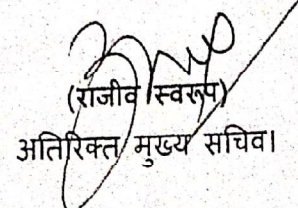 (राजीव स्वरूप)
अतिरिक्त मुख्य सचिव।